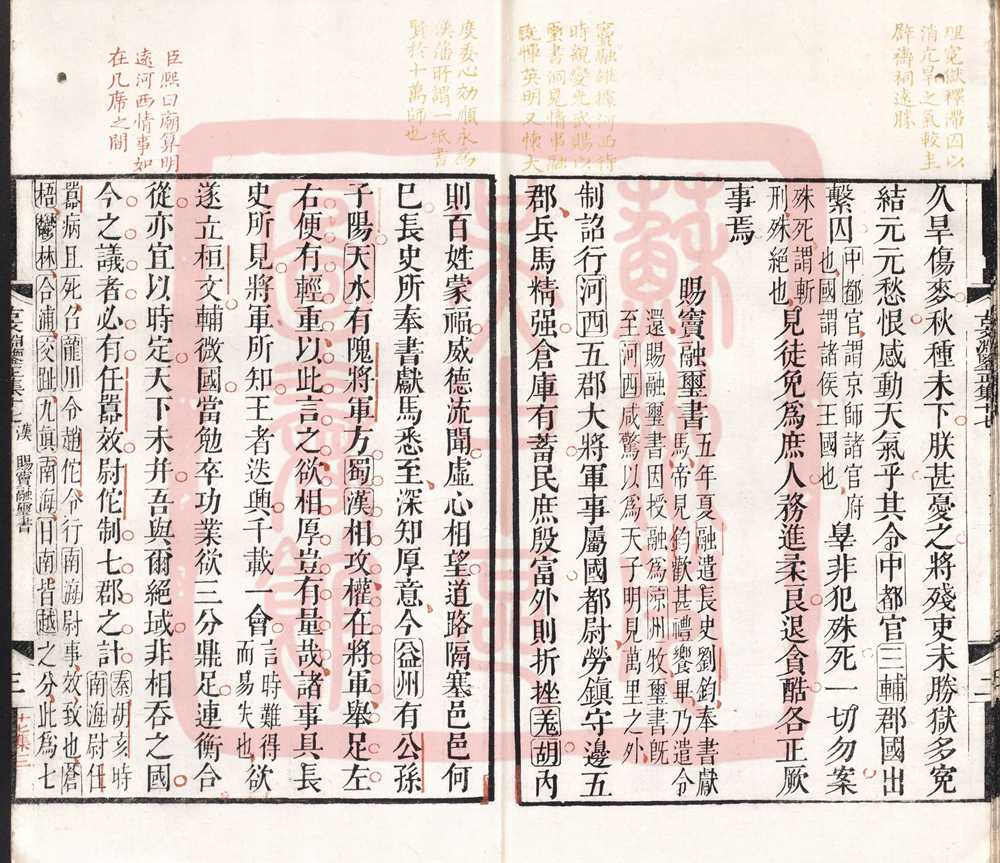 理寃獄釋滯囚以
消亢旱之氣較圭
辟禱祠遠勝
竇融雄據河西待
時觀變光武賜以
璽書洞見情事融
既憚英明又懷大
度委心効順永為
漢藩所謂一紙書
賢於十萬師也
臣熙曰廟算明
遠河西情事如
在几席之間
久旱傷麥秋種未下朕甚憂之將殘吏未勝獄多寃
結元元愁恨感動天氣乎其令中都官三輔郡國出
繫囚中都官謂京師諸官府
也國謂諸侯王國也辠非犯殊死一切勿案
殊死謂斬
刑殊絕也見徒免爲庶人務進柔良退貪酷各正厥
事焉
賜竇融璽書五年夏融遣長史劉鈞奉書獻
馬帝見鈞歡甚禮饗畢乃遣令
還賜融璽書因授融爲涼州牧璽書旣
至河西咸驚以爲天子明見萬里之外
制詔行河西五郡大將軍事屬國都尉勞鎮守邊五
郡兵馬精强倉庫有蓄民庶殷富外則折挫羌胡內
則百姓蒙福威德流聞虛心相望道路隔塞邑邑何
巳長史所奉書獻馬悉至深知厚意今益州有公孫
子陽天水有隗將軍方蜀漢相攻權在將軍舉足左
右便有輕重以此言之欲相厚豈有量哉諸事具長
史所見將軍所知王者迭興千載一會言時難得
而易失也欲
遂立桓文輔微國當勉卒功業欲三分鼎足連衡合
從亦宜以時定天下未幷吾與爾絕域非相吞之國
今之議者必有任囂效尉佗制七郡之計秦胡亥時
南海尉任
囂病且死召龍川令趙佗令行南海尉事效致也蒼
梧鬱林合浦交趾九眞南海日南皆越之分此爲七
漢 賜竇融璽書
三
二